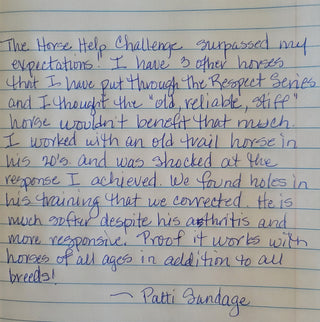 The Horse Help Challenge surpassed my
expectations! I have 3 other horses
that I have put through the Respect Series
and I thought the "old, reliable, stiff"
horse wouldn't benefit that much.
I worked with an old trail horse in
his 20's and was shocked at the
response I achieved. We found holes in
his training that we corrected. He is
much softer despite his arthritis and
more responsive. Proof it works with
horses of all ages in addition to all
breeds!
~ Patti Sundage